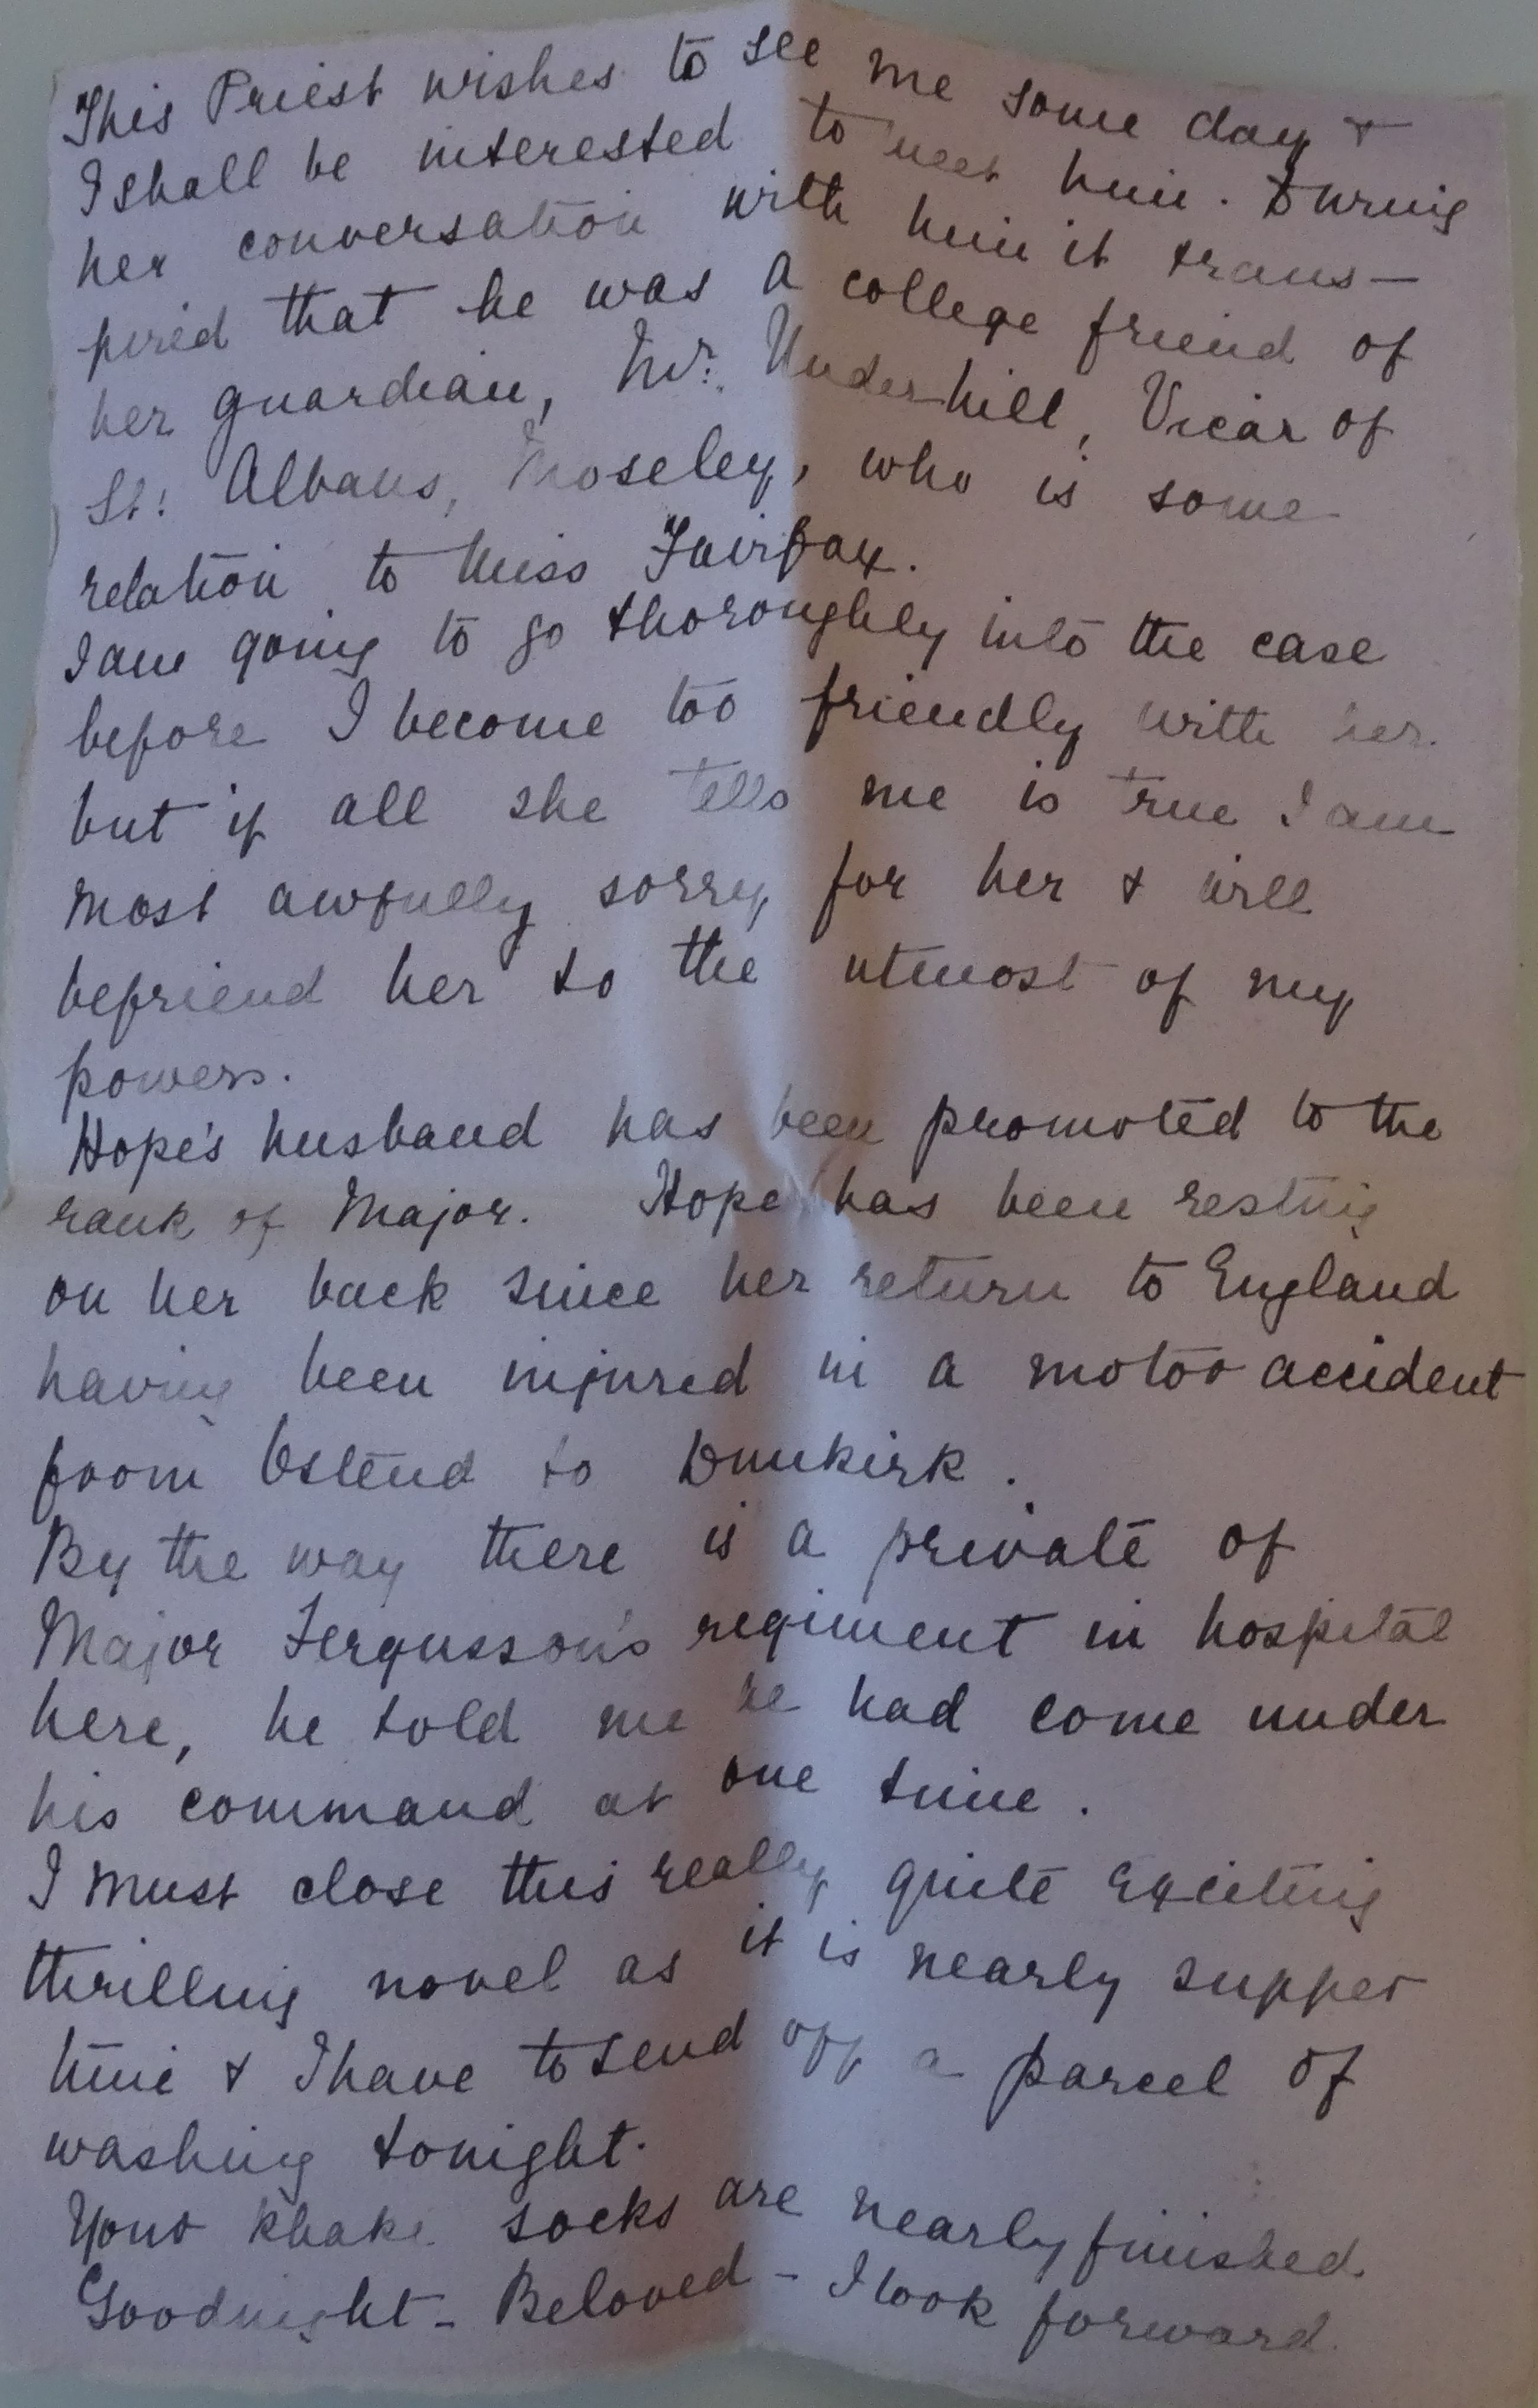 This Priest wishes to see me some day &
I shall be interested to meet him. During
her conversation with him it trans-
pired that he was a college friend of
her guardian, Mr. Underhill, Vicar of
St. Albans, Moseley, who is some
relation to Miss Fairfax.
I am going to go thoroughly into the case
before I become too friendly with her.
but if all she tells me is true I am
most awfully sorry for her & will
befriend her to the utmost of my
powers.
Hope's husband has been promoted to the
rank of Major. Hope has been resting
on her back since her return to England
having been injured in a motor accident
from Ostend to Dunkirk.
By the way there is a private of
Major Fergusson's regiment in hospital
here, he told me he had come under
his command at one time.
I must close this really quite exciting
thrilling novel as it is nearly supper
time & I have to send off a parcel of
washing tonight.
Your khaki socks are nearly finished.
Goodnight - Beloved - I look forward